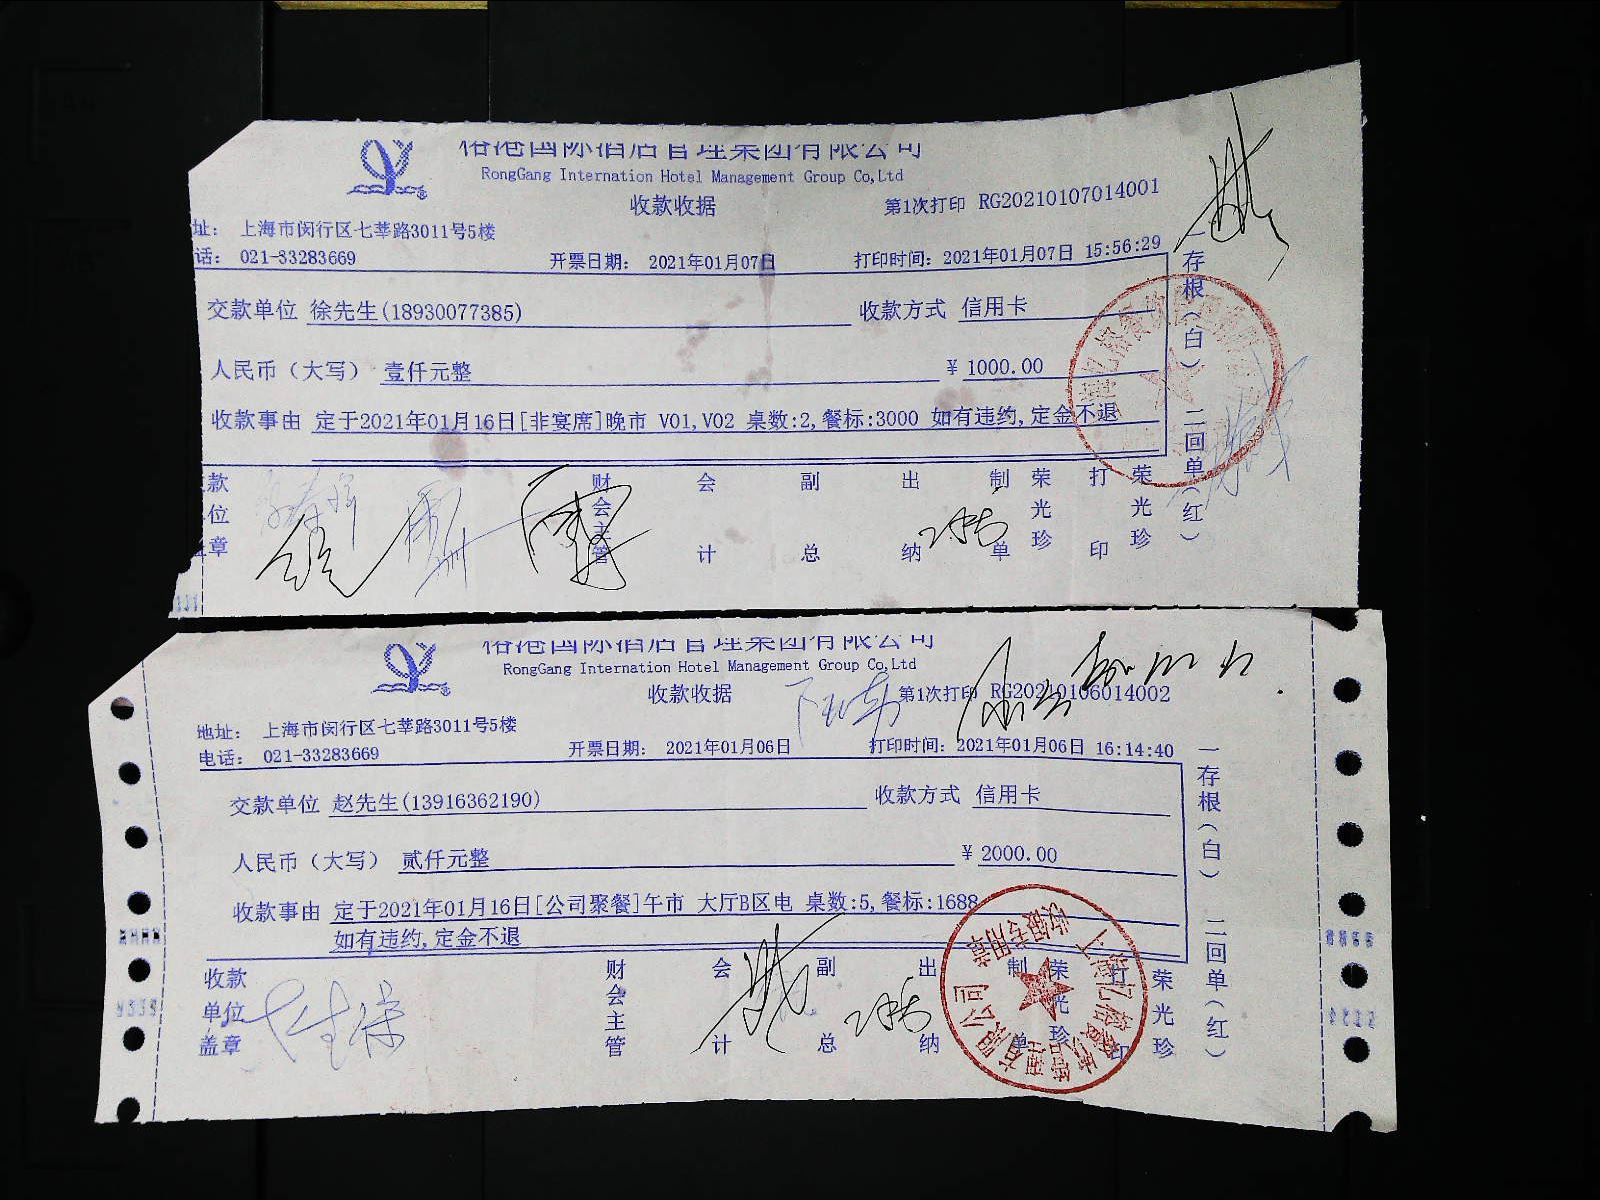 榕港国际酒店管理集团有限公司
RongGang Internation Hotel Management Group Co,Ltd
收款收据
第1次打印 RG20210107014001
址： 上海市闵行区七莘路3011号5楼
话： 021-33283669
开票日期： 2021年01月07日
打印时间：2021年01月07日 15:56:29
交款单位 徐先生(18930077385)
收款方式 信用卡
人民币（大写） 壹仟元整
¥ 1000.00
收款事由 定于2021年01月16日[非宴席]晚市 V01,V02 桌数:2,餐标:3000 如有违约,定金不退
款 单位 盖章
财会主管
会计
副总
出纳
制单
荣光珍
打印
荣光珍
一存根（白） 二回单（红）
榕港国际酒店管理集团有限公司
RongGang Internation Hotel Management Group Co,Ltd
收款收据
第1次打印 RG20210106014002
地址： 上海市闵行区七莘路3011号5楼
电话： 021-33283669
开票日期： 2021年01月06日
打印时间：2021年01月06日 16:14:40
交款单位 赵先生(13916362190)
收款方式 信用卡
人民币（大写） 贰仟元整
¥ 2000.00
收款事由 定于2021年01月16日[公司聚餐]午市 大厅B区电 桌数:5,餐标:1688
如有违约,定金不退
收款单位盖章
财会主管
会计
副总
出纳
制单
荣光珍
打印
荣光珍
一存根（白） 二回单（红）